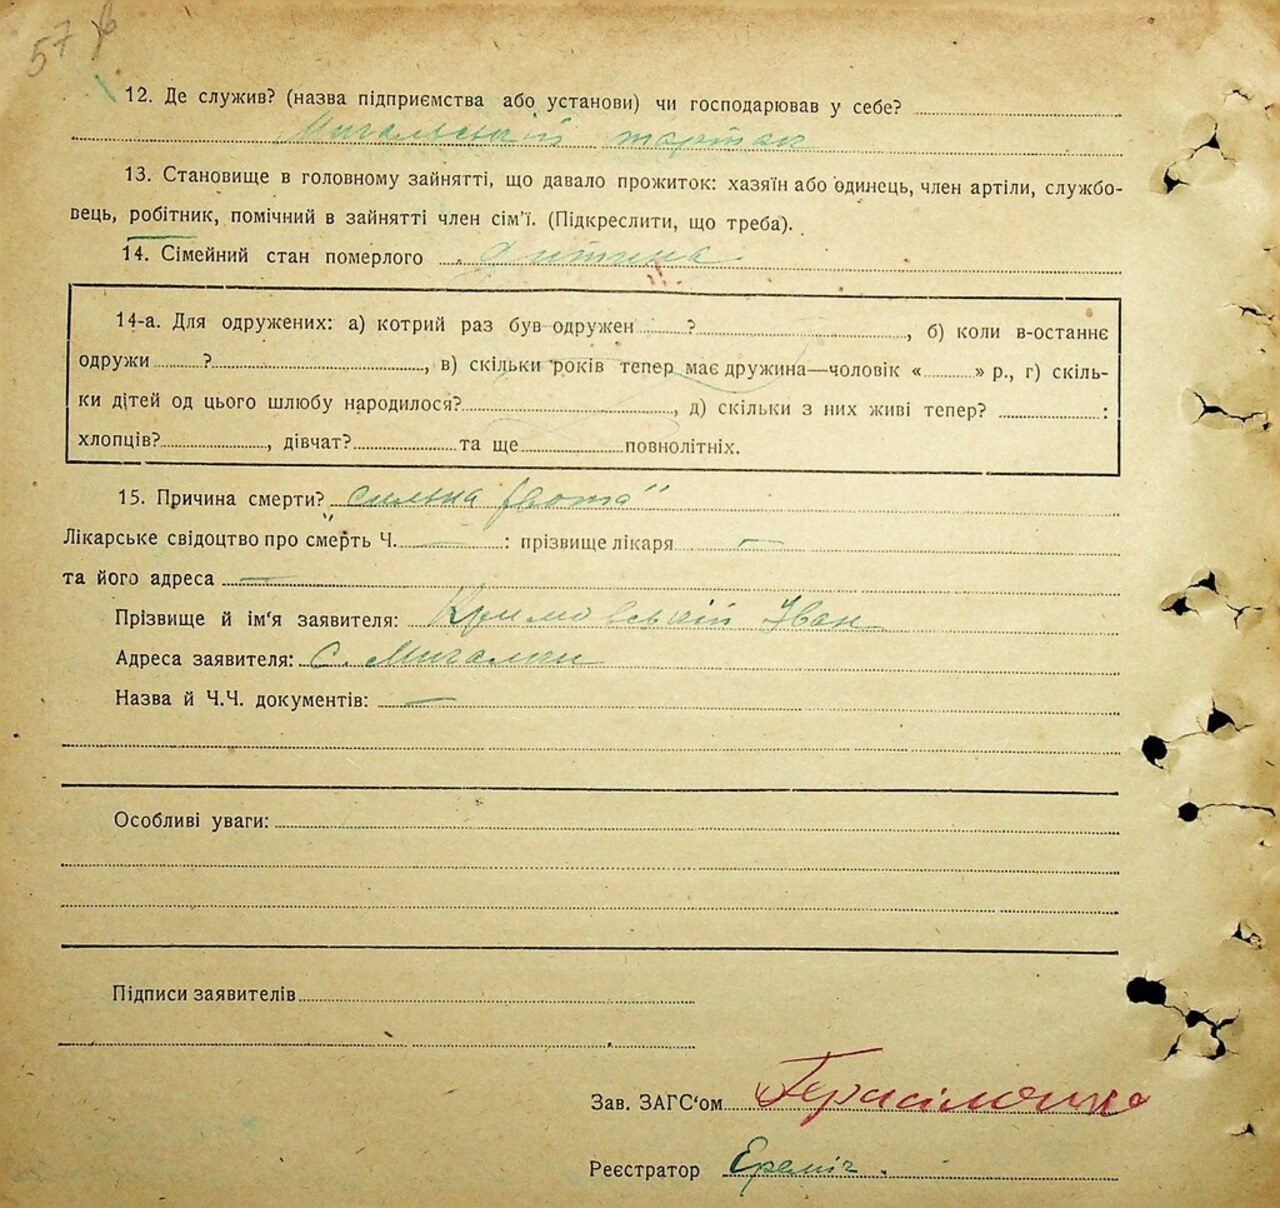 57
12. Де служив? (назва підприємства або установи) чи господарював у себе?
Мигальський тартак
13. Становище в головному зайнятті, що давало прожиток: хазяїн або одинець, член артіли, службо-
вець, робітник, помічний в зайнятті член сім'ї. (Підкреслити, що треба).
14. Сімейний стан померлого дитина
14-а. Для одружених: а) котрий раз був одружен ?, б) коли в-останнє
одружи ?, в) скільки років тепер має дружина—чоловік « » р., г) скіль-
ки дітей од цього шлюбу народилося?, д) скільки з них живі тепер? :
хлопців?, дівчат? та ще повнолітніх.
15. Причина смерти? сильна рвота
Лікарське свідоцтво про смерть Ч. — : прізвище лікаря —
та його адреса —
Прізвище й ім'я заявителя: Іван
Адреса заявителя: С. Мигалки
Назва й Ч.Ч. документів: —
Особливі уваги:
Підписи заявителів
Зав. ЗАГС'ом
Реєстратор Ереміч.